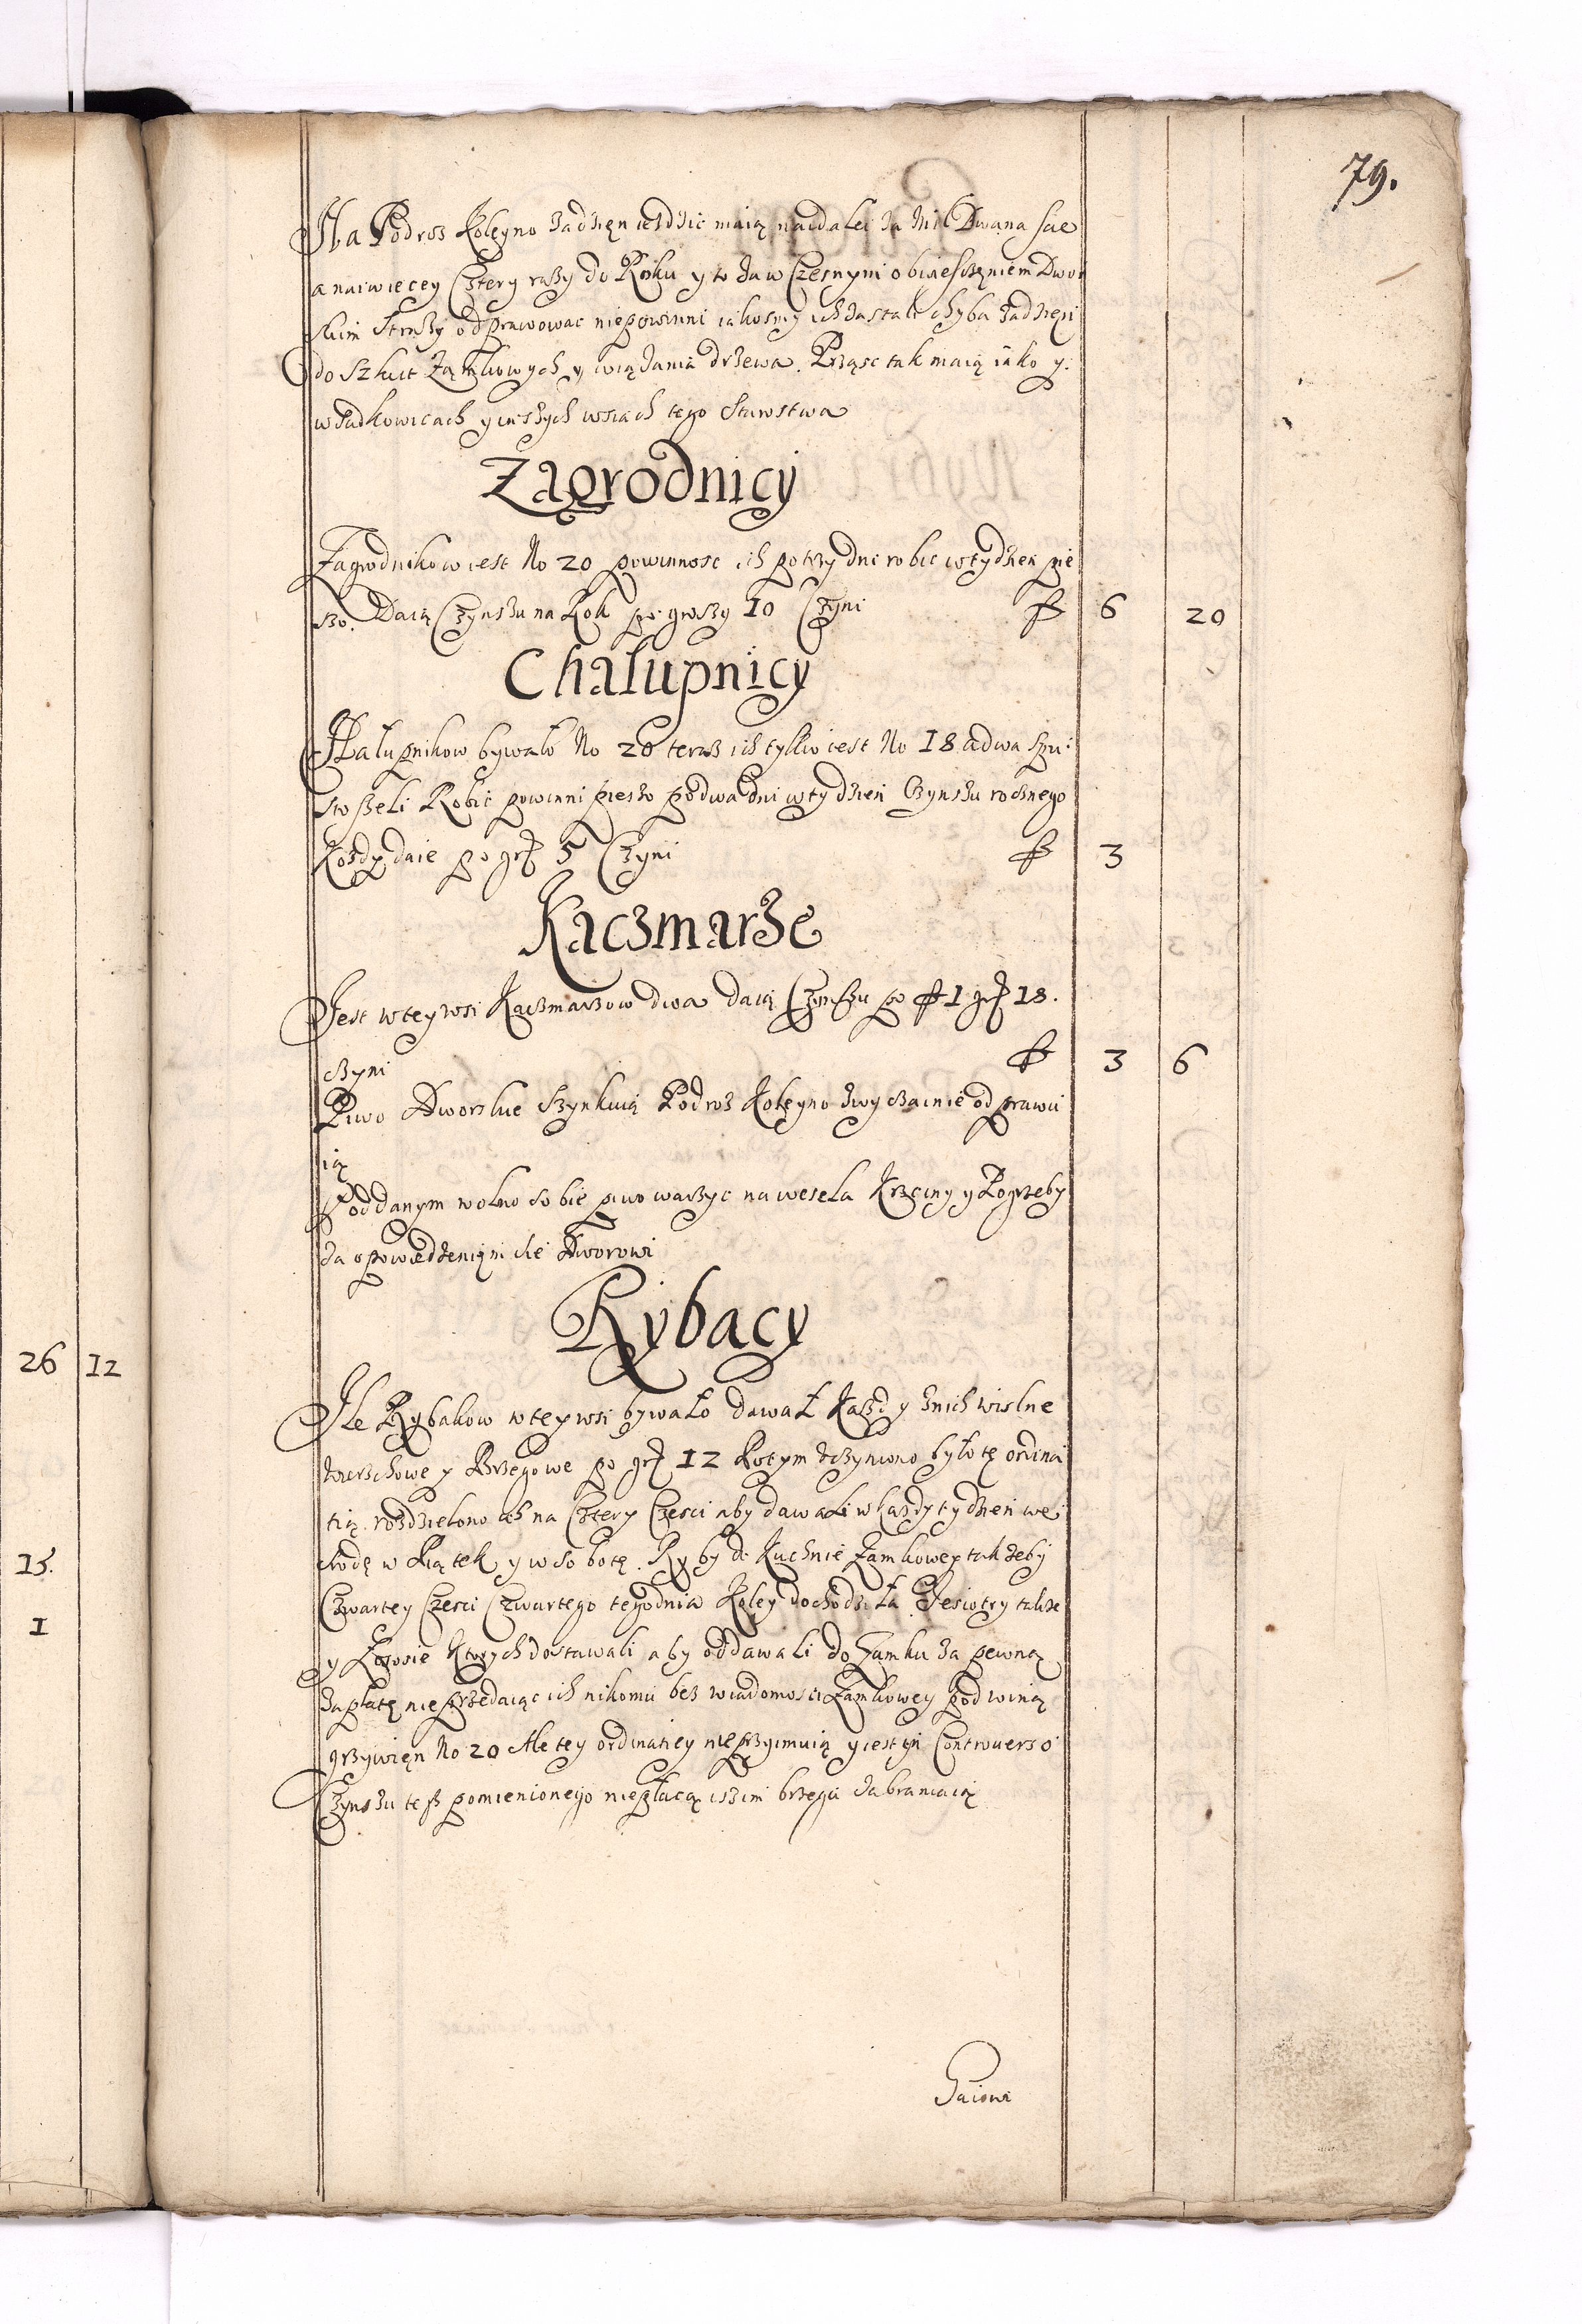 79.
Na Podroż Koleyno za dzięn iezdzic maią naidaley za Mil Dwana scie
a naiwiecey Cztery rażÿ do Roku y to za w Czesnÿm obwiesczęniem Dwor
skim Strożÿ odprawowac niepowinni iakosmÿ ich zastali chyba zadzięn
do Szkut Zamkowych y wiązania drzewa. Prząsc tak maią iako y:
w Sadkowicach y inszÿch wsiach tego Starostwa
Zagrodnicÿ
Zagrodnikow iest No 20 powinnosc ich po trzÿ dni robic w tydzien pie
szo. Daią Czynszu na Rok po groszÿ 10 Czÿni f 6 20
Chalupnicy
Hałupnikow bywało No 20 teraz ich tylko iest No 18 a dwa spu:
stoszeli Robic powinni pieszo po dwa dni w tydzien Czynszu rocznego
Kożdy daie po gr 5 Czyni f 3
Kaczmarze
Jest w tey wsi Kaczmarzow dwa daią Czynszu po f 1 gr 18.
czyni f 3 6
Piwo Dworskie szynkuią Podroż Koleyno zwyczainie odprawu
ią
Poddanym wolno sobie piwo warzyc na wesela Krzciny y Pogrzeby
za opowiedzenięm sie Dworowi
Rybacy
Ile Rybakow w tey wsi bywało dawał Każdy z nich wislne
wierzchowe y Brzegowe po gr 12 Potym uczyniono było tę ordina
tią rozdzielono ich na Cztery Czesci aby dawali w każdy tydzien we
srodę w Piątek y w Sobotę. Ryby do Kuchnie Zamkowey tak żeby
Czwartey Czesci Czwartego tegodnia Koley dochodziła Jesiotry także
y Łososie Ktorych dostawali aby oddawali do Zamku za pewną
zapłatę nie przedaiąc ich nikomu bez wiadomosci Zamkowey pod winą
grzywięn No 20 Ale tey ordinatiey nie przyimuią y iest in Controuerso
Czynszu tesz pomienionego niepłacą isz im brzegu zabraniaią
Gaiowi
26 12
15.
1